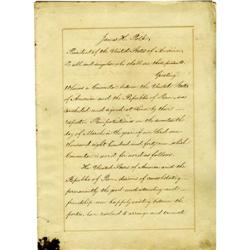 James K. Polk,
President of the United States of America,
To all and singular who shall see these presents,
Greeting:
Whereas a Convention between the United States
of America and the Republic of Peru, was
concluded and signed at Lima by their
respective Plenipotentiaries on the seventeenth
day of March in the year of our Lord one
thousand eight hundred and forty one which
Convention is word for word as follows.
The United States of America and the
Republic of Peru, desirous of consolidating
permanently the good understanding and
friendship now happily existing between the
parties, have resolved to arrange and